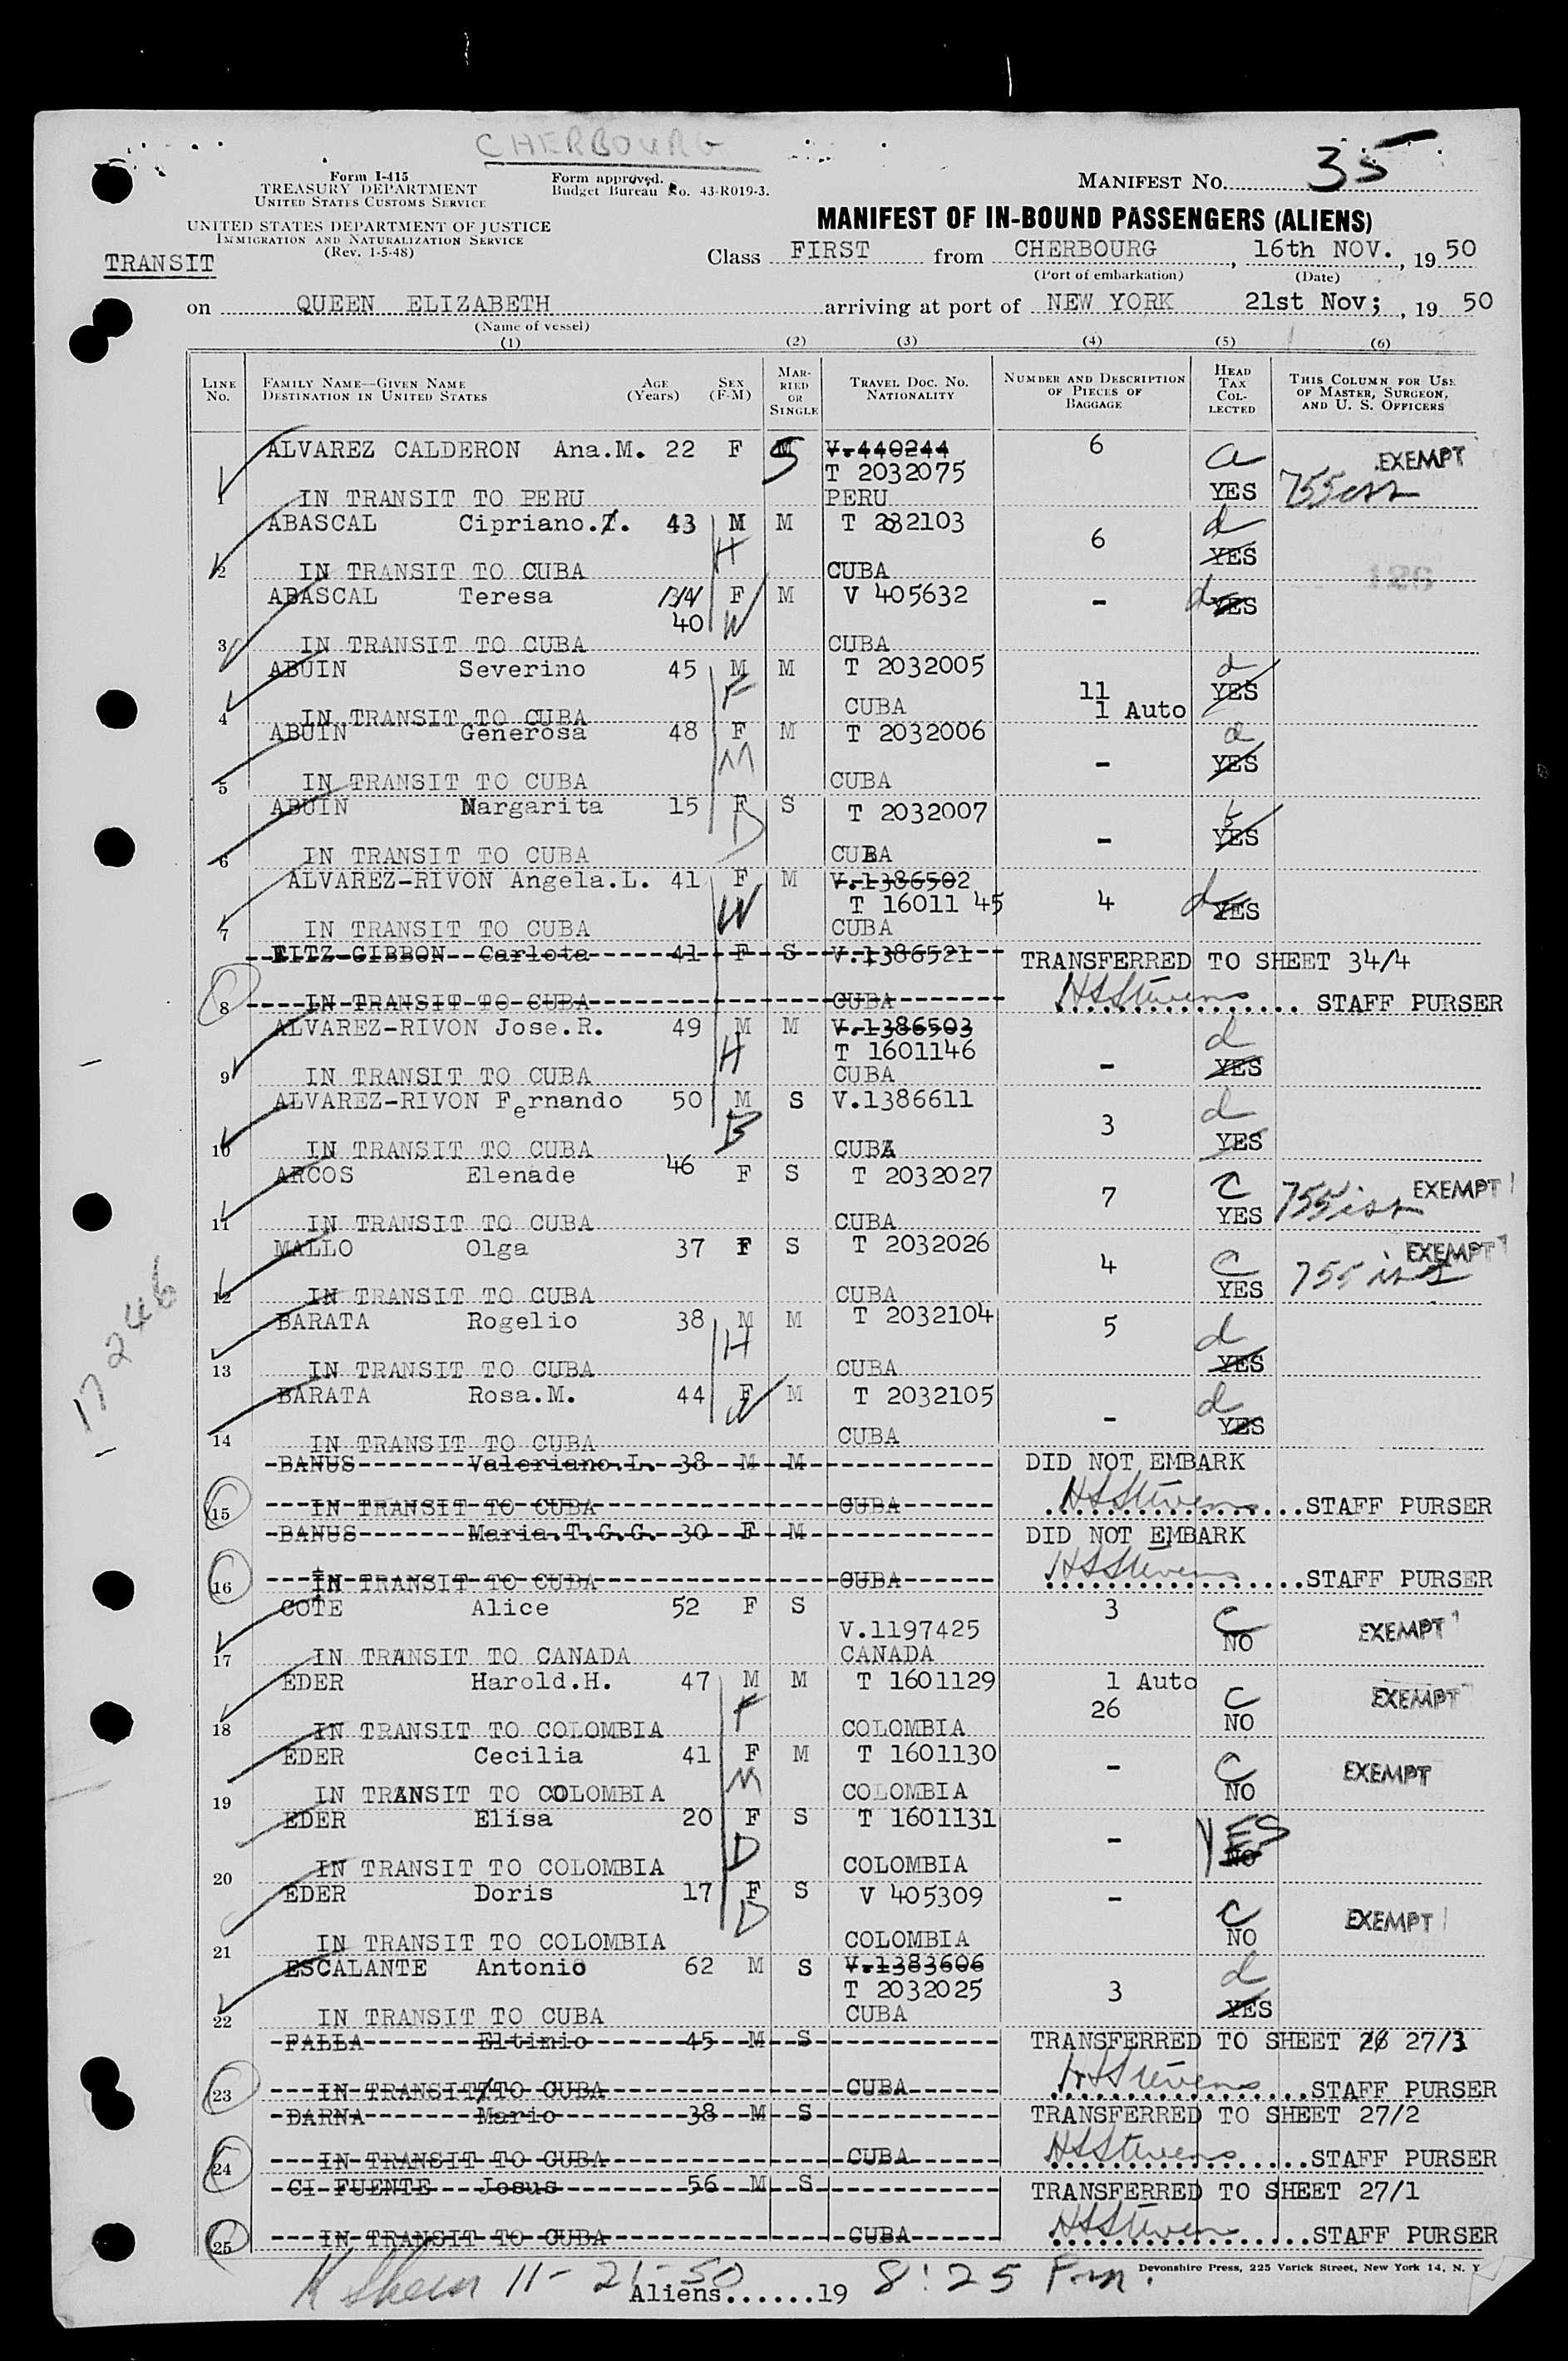 CHERBOURG
Form I-415
TREASURY DEPARTMENT
UNITED STATES CUSTOMS SERVICE
Form approved.
Budget Bureau No. 43-R019-3.
MANIFEST No. 35
UNITED STATES DEPARTMENT OF JUSTICE
IMMIGRATION AND NATURALIZATION SERVICE
(Rev. 1-5-48)
MANIFEST OF IN-BOUND PASSENGERS (ALIENS)
TRANSIT
Class FIRST from CHERBOURG, 16th NOV., 1950
(Port of embarkation) (Date)
on QUEEN ELIZABETH arriving at port of NEW YORK 21st Nov; , 19 50
(Name of vessel)
(1) (2) (3) (4) (5) (6)
LINE No. FAMILY NAME—GIVEN NAME DESTINATION IN UNITED STATES AGE (Years) SEX (F-M) MARRIED OR SINGLE TRAVEL DOC. NO. NATIONALITY NUMBER AND DESCRIPTION OF PIECES OF BAGGAGE HEAD TAX COLLECTED THIS COLUMN FOR USE OF MASTER, SURGEON, AND U. S. OFFICERS
ALVAREZ CALDERON Ana.M. 22 F S V.440244 6 a EXEMPT
T 2032075
1 IN TRANSIT TO PERU PERU YES 755
ABASCAL Cipriano.Z. 43 M M T 232103 6 d
H
2 IN TRANSIT TO CUBA CUBA YES
ABASCAL Teresa 40 F M V 405632 - d YES
W
3 IN TRANSIT TO CUBA CUBA
ABUIN Severino 45 M M T 2032005 d
F 11 YES
4 IN TRANSIT TO CUBA CUBA 1 Auto
ABUIN Generosa 48 F M T 2032006 d
M
5 IN TRANSIT TO CUBA CUBA - YES
ABUIN Margarita 15 F S T 2032007
D
6 IN TRANSIT TO CUBA CUBA - YES
ALVAREZ-RIVON Angela.L. 41 F M V.1386502
W T 16011 45 4 d YES
7 IN TRANSIT TO CUBA CUBA
FITZ GIBBON Carlota 41 F S V.1386521 TRANSFERRED TO SHEET 34/4
8 IN TRANSIT TO CUBA CUBA HSStevens STAFF PURSER
ALVAREZ-RIVON Jose.R. 49 M M V.1386503 d
H T 1601146
9 IN TRANSIT TO CUBA CUBA - YES
ALVAREZ-RIVON Fernando 50 M S V.1386611 3 d
B
10 IN TRANSIT TO CUBA CUBA YES
ARCOS Elenade 46 F S T 2032027 7 c EXEMPT
11 IN TRANSIT TO CUBA CUBA YES 755
MALLO Olga 37 F S T 2032026 4 c EXEMPT
12 IN TRANSIT TO CUBA CUBA YES 755
BARATA Rogelio 38 M M T 2032104 5 d
H
13 IN TRANSIT TO CUBA CUBA YES
BARATA Rosa.M. 44 F M T 2032105 - d
W YES
14 IN TRANSIT TO CUBA CUBA
BANUS Valeriano.L. 38 M M DID NOT EMBARK
15 IN TRANSIT TO CUBA CUBA HSStevens STAFF PURSER
BANUS Maria.T.G.G. 30 F M DID NOT EMBARK
16 IN TRANSIT TO CUBA CUBA HSStevens STAFF PURSER
COTE Alice 52 F S 3 c
V.1197425 NO EXEMPT
17 IN TRANSIT TO CANADA CANADA
EDER Harold.H. 47 M M T 1601129 1 Auto c EXEMPT
F 26
18 IN TRANSIT TO COLOMBIA COLOMBIA NO
EDER Cecilia 41 F M T 1601130 - c EXEMPT
M
19 IN TRANSIT TO COLOMBIA COLOMBIA NO
EDER Elisa 20 F S T 1601131 - YES
D NO
20 IN TRANSIT TO COLOMBIA COLOMBIA
EDER Doris 17 F S V 405309 - c EXEMPT
D NO
21 IN TRANSIT TO COLOMBIA COLOMBIA
ESCALANTE Antonio 62 M S V.1383606 d
T 2032025 3
22 IN TRANSIT TO CUBA CUBA YES
FALLA Eltinio 45 M S TRANSFERRED TO SHEET 26 27/3
23 IN TRANSIT TO CUBA CUBA HSStevens STAFF PURSER
DARNA Mario 38 M S TRANSFERRED TO SHEET 27/2
24 IN TRANSIT TO CUBA CUBA HSStevens STAFF PURSER
CI FUENTE Josus 56 M S TRANSFERRED TO SHEET 27/1
25 IN TRANSIT TO CUBA CUBA HSStevens STAFF PURSER
172446
Devonshire Press, 225 Varick Street, New York 14, N. Y.
K Shein 11-21-50 8:25 Pm.
Aliens......19